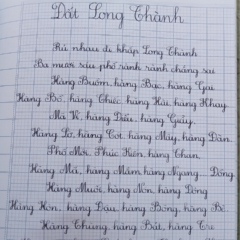 Đất Long Thành
Rủ nhau đi khắp Long Thành
Ba mươi sáu phố rành rành chẳng sai
Hàng Buồm, hàng Bạc, hàng Gai
Hàng Bồ, hàng Thiếc, hàng Hài, hàng Khay
Mã Vĩ, hàng Điếu, hàng Giày
Hàng Lờ, hàng Cót, hàng Mây, hàng Đàn
Phố Mới, Phúc Kiến, hàng Than,
Hàng Mã, hàng Mắm hàng Ngang Đồng
Hàng Muối, hàng Nón, hàng Đông
Hàng Hòm, hàng Đậu, hàng Bông, hàng Bè
Hàng Thùng, hàng Bát, hàng Tre